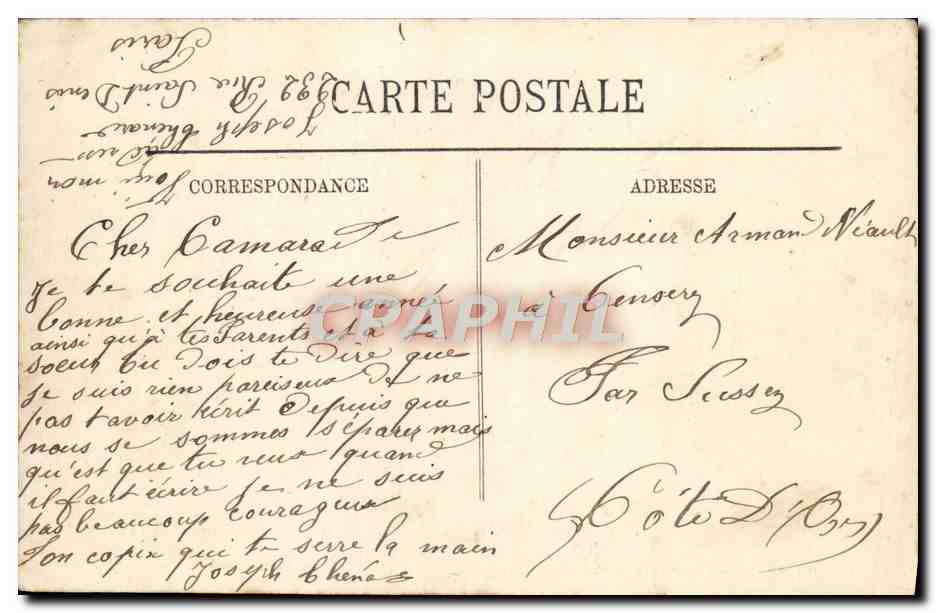 CARTE POSTALE
CORRESPONDANCE
ADRESSE
Cher Camarade
Je te souhaite une
bonne et heureuse anné
ainsi qu'à tes Parents et à ta
soeur tu dois te dire que
je suis rien pareiseux de ne
pas t'avoir écrit depuis que
nous se sommes séparer mais
qu'est que tu veux quand
il faut écrire je ne suis
pas beaucoup courageux
Ton copin qui te serre la main
Joseph
Voici mon
Joseph
232 Rue Saint Denis
Paris
Monsieur Armand Néault
à
Par Sussey
Côte D'Or
CPAPHIL